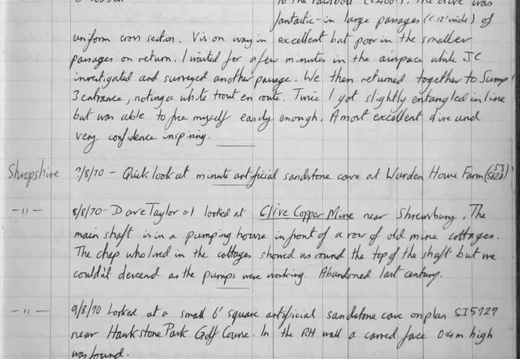 to the rainbow (c200'). The dive was
fantastic - in large passages (c 12' wide) of
uniform cross section. Vis on way in excellent but poor in the smaller
passages on return. I waited for a few minutes in the airspace while JC
investigated and surveyed another passage. We then returned together to Sump
3 entrance, noting a white trout en route. Twice I got slightly entangled in line
but was able to free myself easily enough. A most excellent dive and
very confidence inspiring.
Shropshire 7/8/70 - Quick look at minute artificial sandstone cave at Warden House Farm
-"- 8/8/70 - Dave Taylor & I looked at Clive Copper Mine near Shrewsbury. The
main shaft is in a pumping house in front of a row of old mine cottages.
The chap who lived in the cottages showed us round the top of the shaft but we
could'd descend as the pumps were working. Abandoned last century.
-"- 9/8/70 Looked at a small 6' square artificial sandstone cave on plan SJ5729
near Hawkstone Park Golf Course. In the RH wall a carved face 0.4m high
was found.